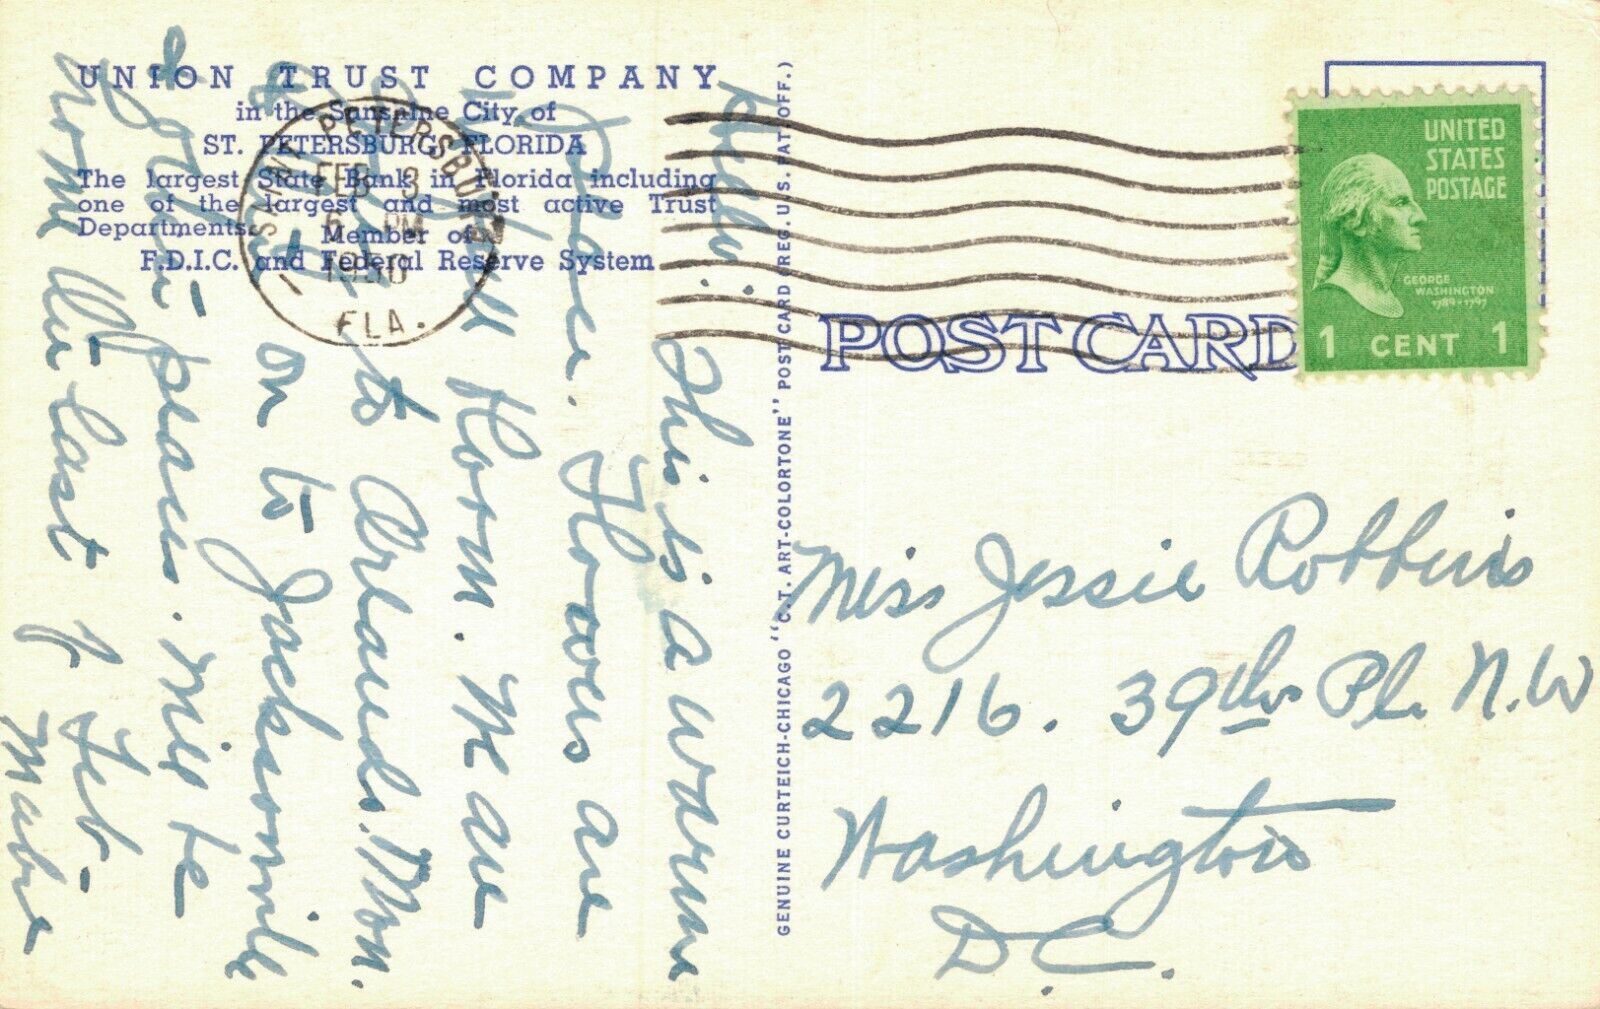 UNION TRUST COMPANY
in the Sunshine City of
ST. PETERSBURG, FLORIDA
The largest State Bank in Florida including
one of the largest and most active Trust
Departments. Member of
F.D.I.C. and Federal Reserve System
SAINT PETERSBURG
FEB 3
6 PM
1950
FLA.
GENUINE CURTEICH-CHICAGO "C.T. ART-COLORTONE" POST CARD (REG. U.S. PAT. OFF.)
POST CARD
UNITED
STATES
POSTAGE
GEORGE
WASHINGTON
1789-1797
1 CENT 1
Hello: This is a warm
place. Flowers are
in full bloom. We are
to Orlando. Mon.
on to Jacksonville
places. Will be
home the last of Feb-
Mabre
Miss Jessie Robbins
2216. 39th Pl. N.W
Washington
D.C.